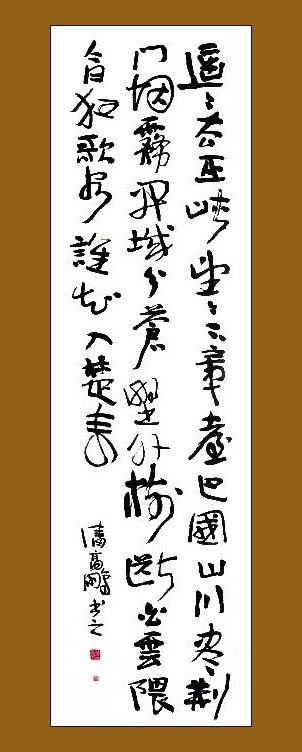 遙〻去巫峽望〻下章臺巴國山川盡荆
門烟霧開城分蒼野外樹斷白雲隈
今日狂歌客誰知入楚来
潘高鵬书之